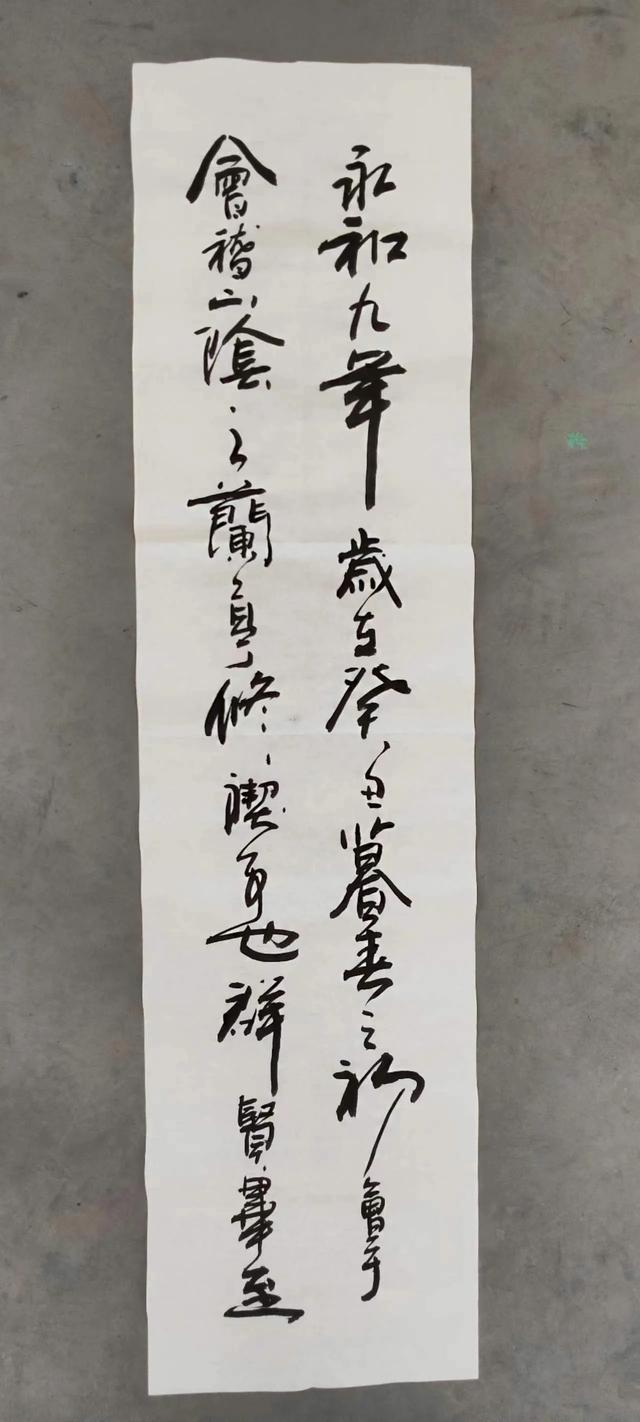 永和九年歲在癸丑暮春之初會于
會稽山陰之蘭亭修禊事也群賢畢至